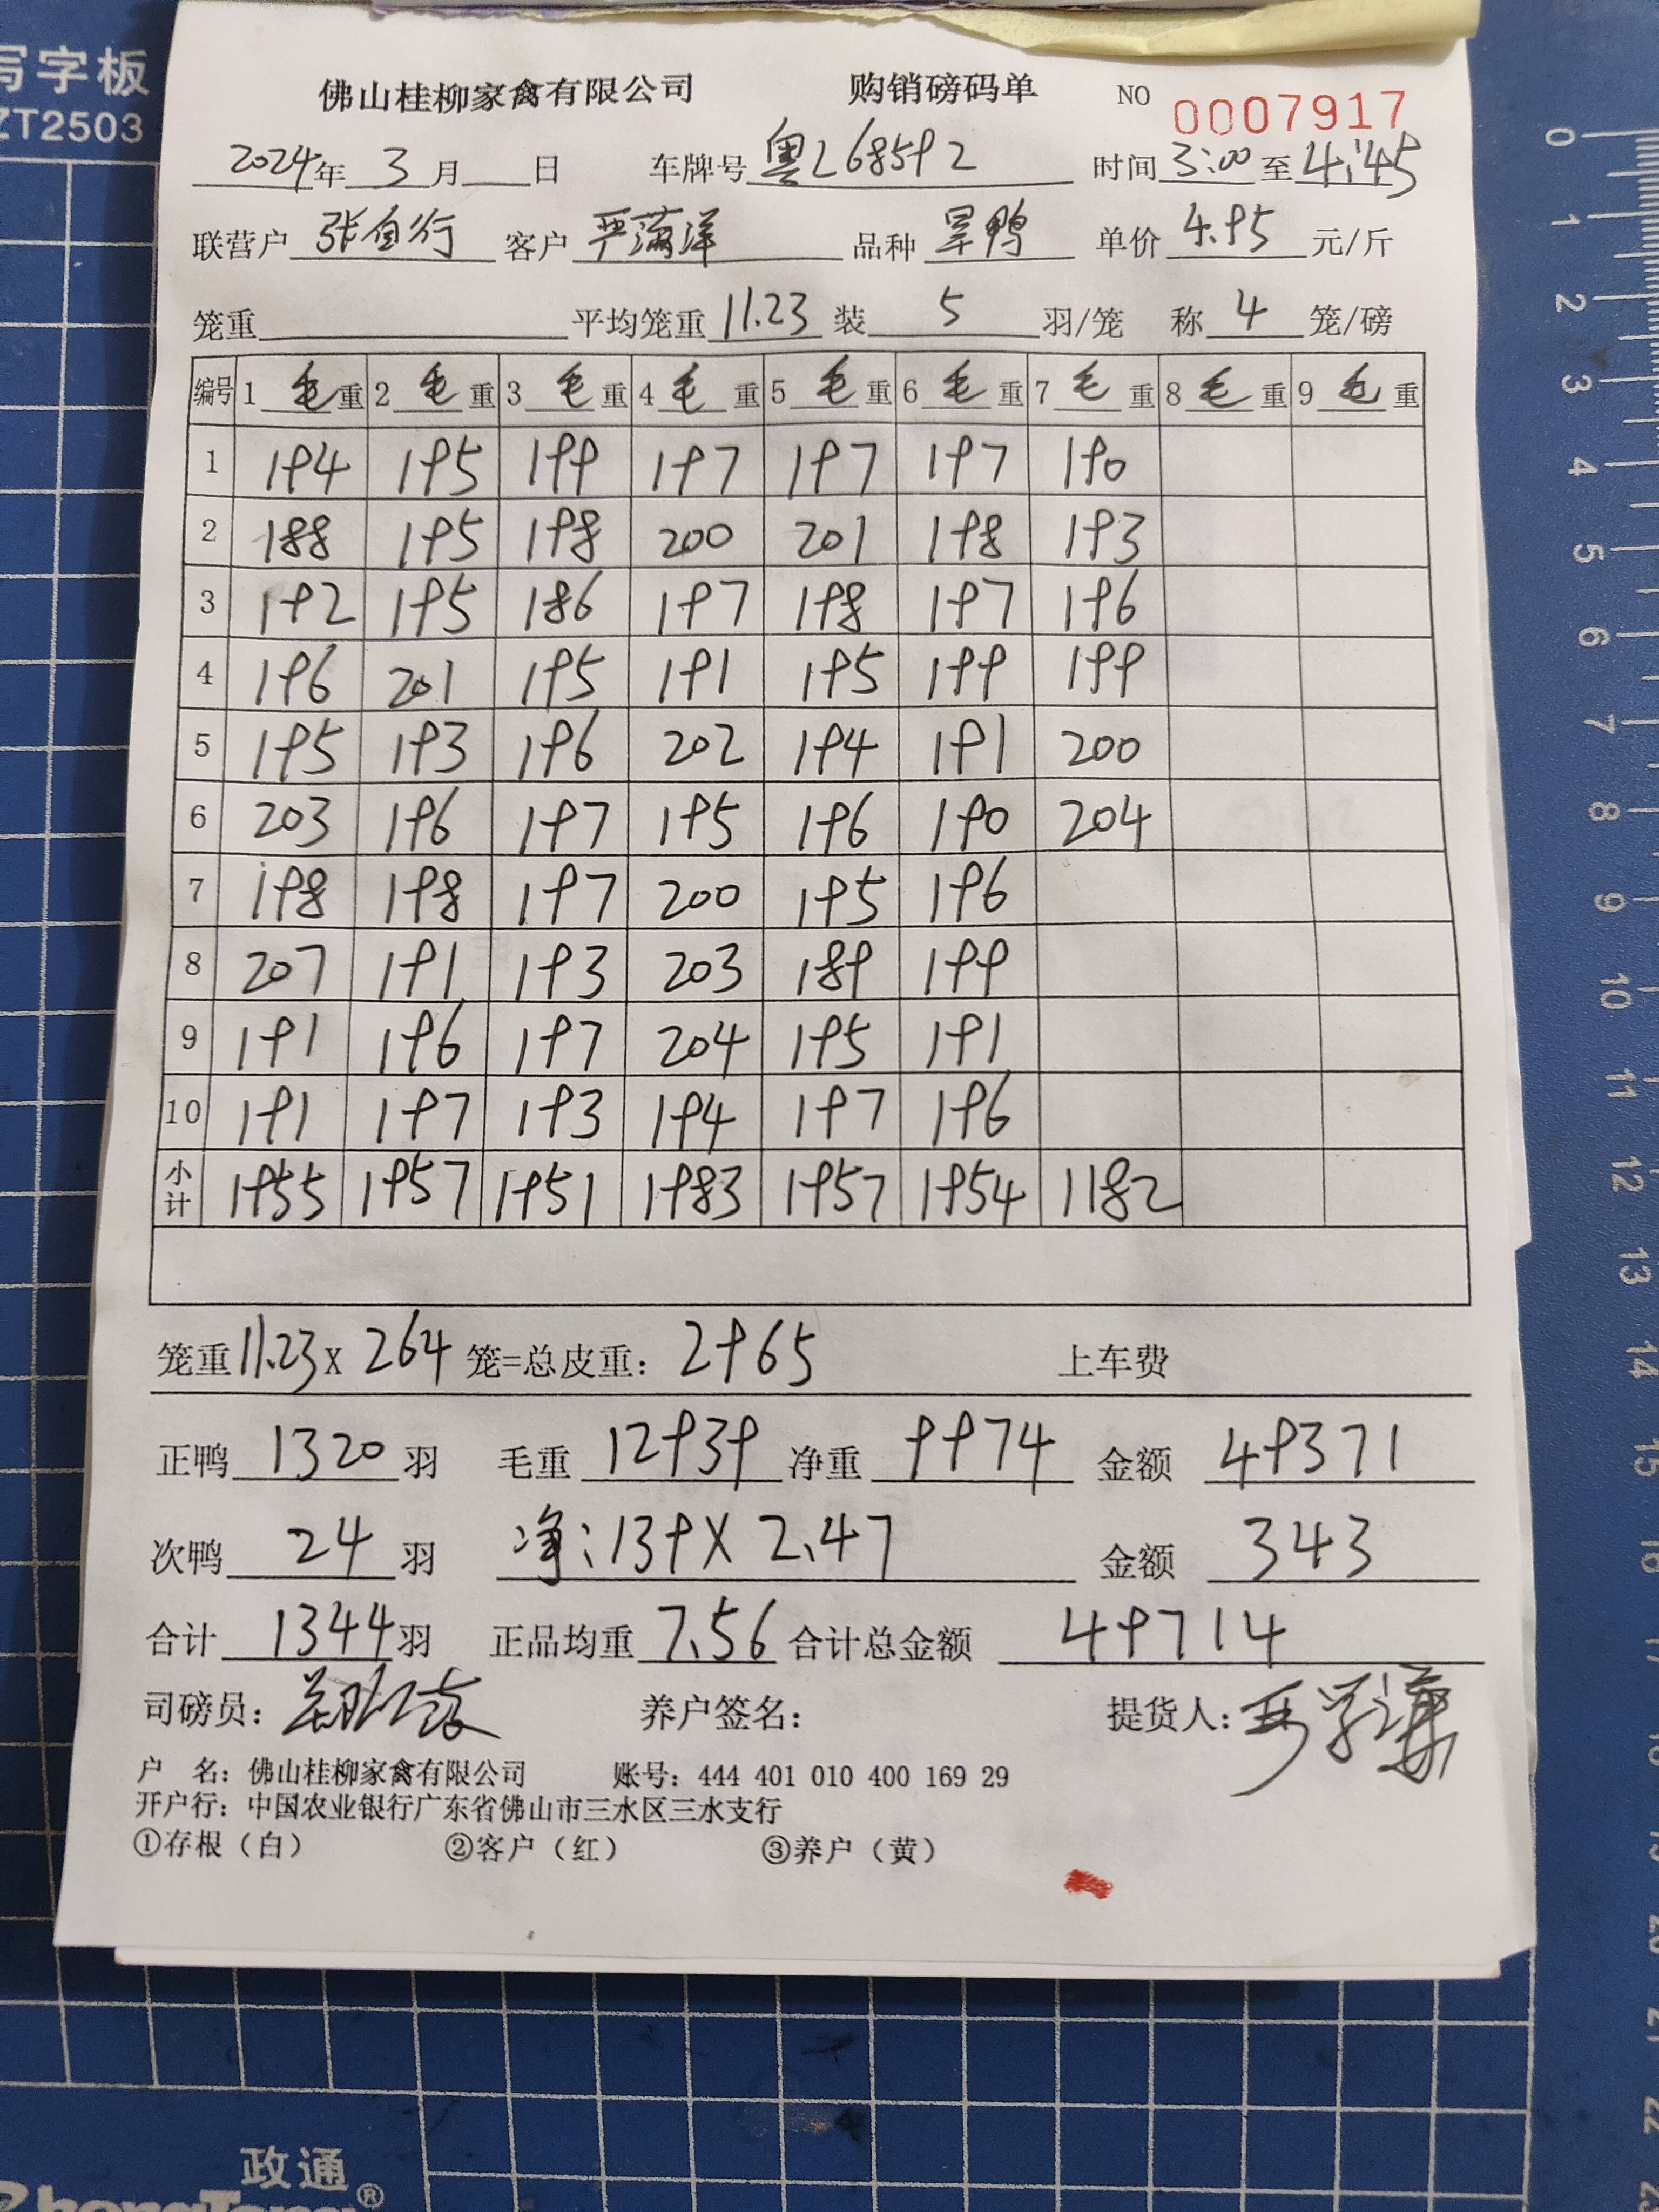 写字板
ZT2503
佛山桂柳家禽有限公司 购销磅码单 NO 0007917
2024年 3 月 日 车牌号 粤L68592 时间 3:00 至 4:45
联营户 张自行 客户 严满洋 品种 旱鸭 单价 4.95 元/斤
笼重 平均笼重 11.23 装 5 羽/笼 称 4 笼/磅
编号 1 毛 重 2 毛 重 3 毛 重 4 毛 重 5 毛 重 6 毛 重 7 毛 重 8 毛 重 9 毛 重
1 194 195 199 197 197 197 190
2 188 195 198 200 201 198 193
3 192 195 186 197 198 197 196
4 196 201 195 191 195 199 199
5 195 193 196 202 194 191 200
6 203 196 197 195 196 190 204
7 198 198 197 200 195 196
8 207 191 193 203 189 199
9 191 196 197 204 195 191
10 191 197 193 194 197 196
小计 1955 1957 1951 1983 1957 1954 1182
笼重 11.23 x 264 笼=总皮重: 2965 上车费
正鸭 1320 羽 毛重 12939 净重 9974 金额 49371
次鸭 24 羽 净:139X 2.47 金额 343
合计 1344 羽 正品均重 7.56 合计总金额 49714
司磅员: 养户签名: 提货人:
户 名: 佛山桂柳家禽有限公司 账号: 444 401 010 400 169 29
开户行: 中国农业银行广东省佛山市三水区三水支行
①存根（白） ②客户（红） ③养户（黄）
政通®
0 1 2 3 4 5 6 7 8 9 10 11 12 13 14 15 16 17